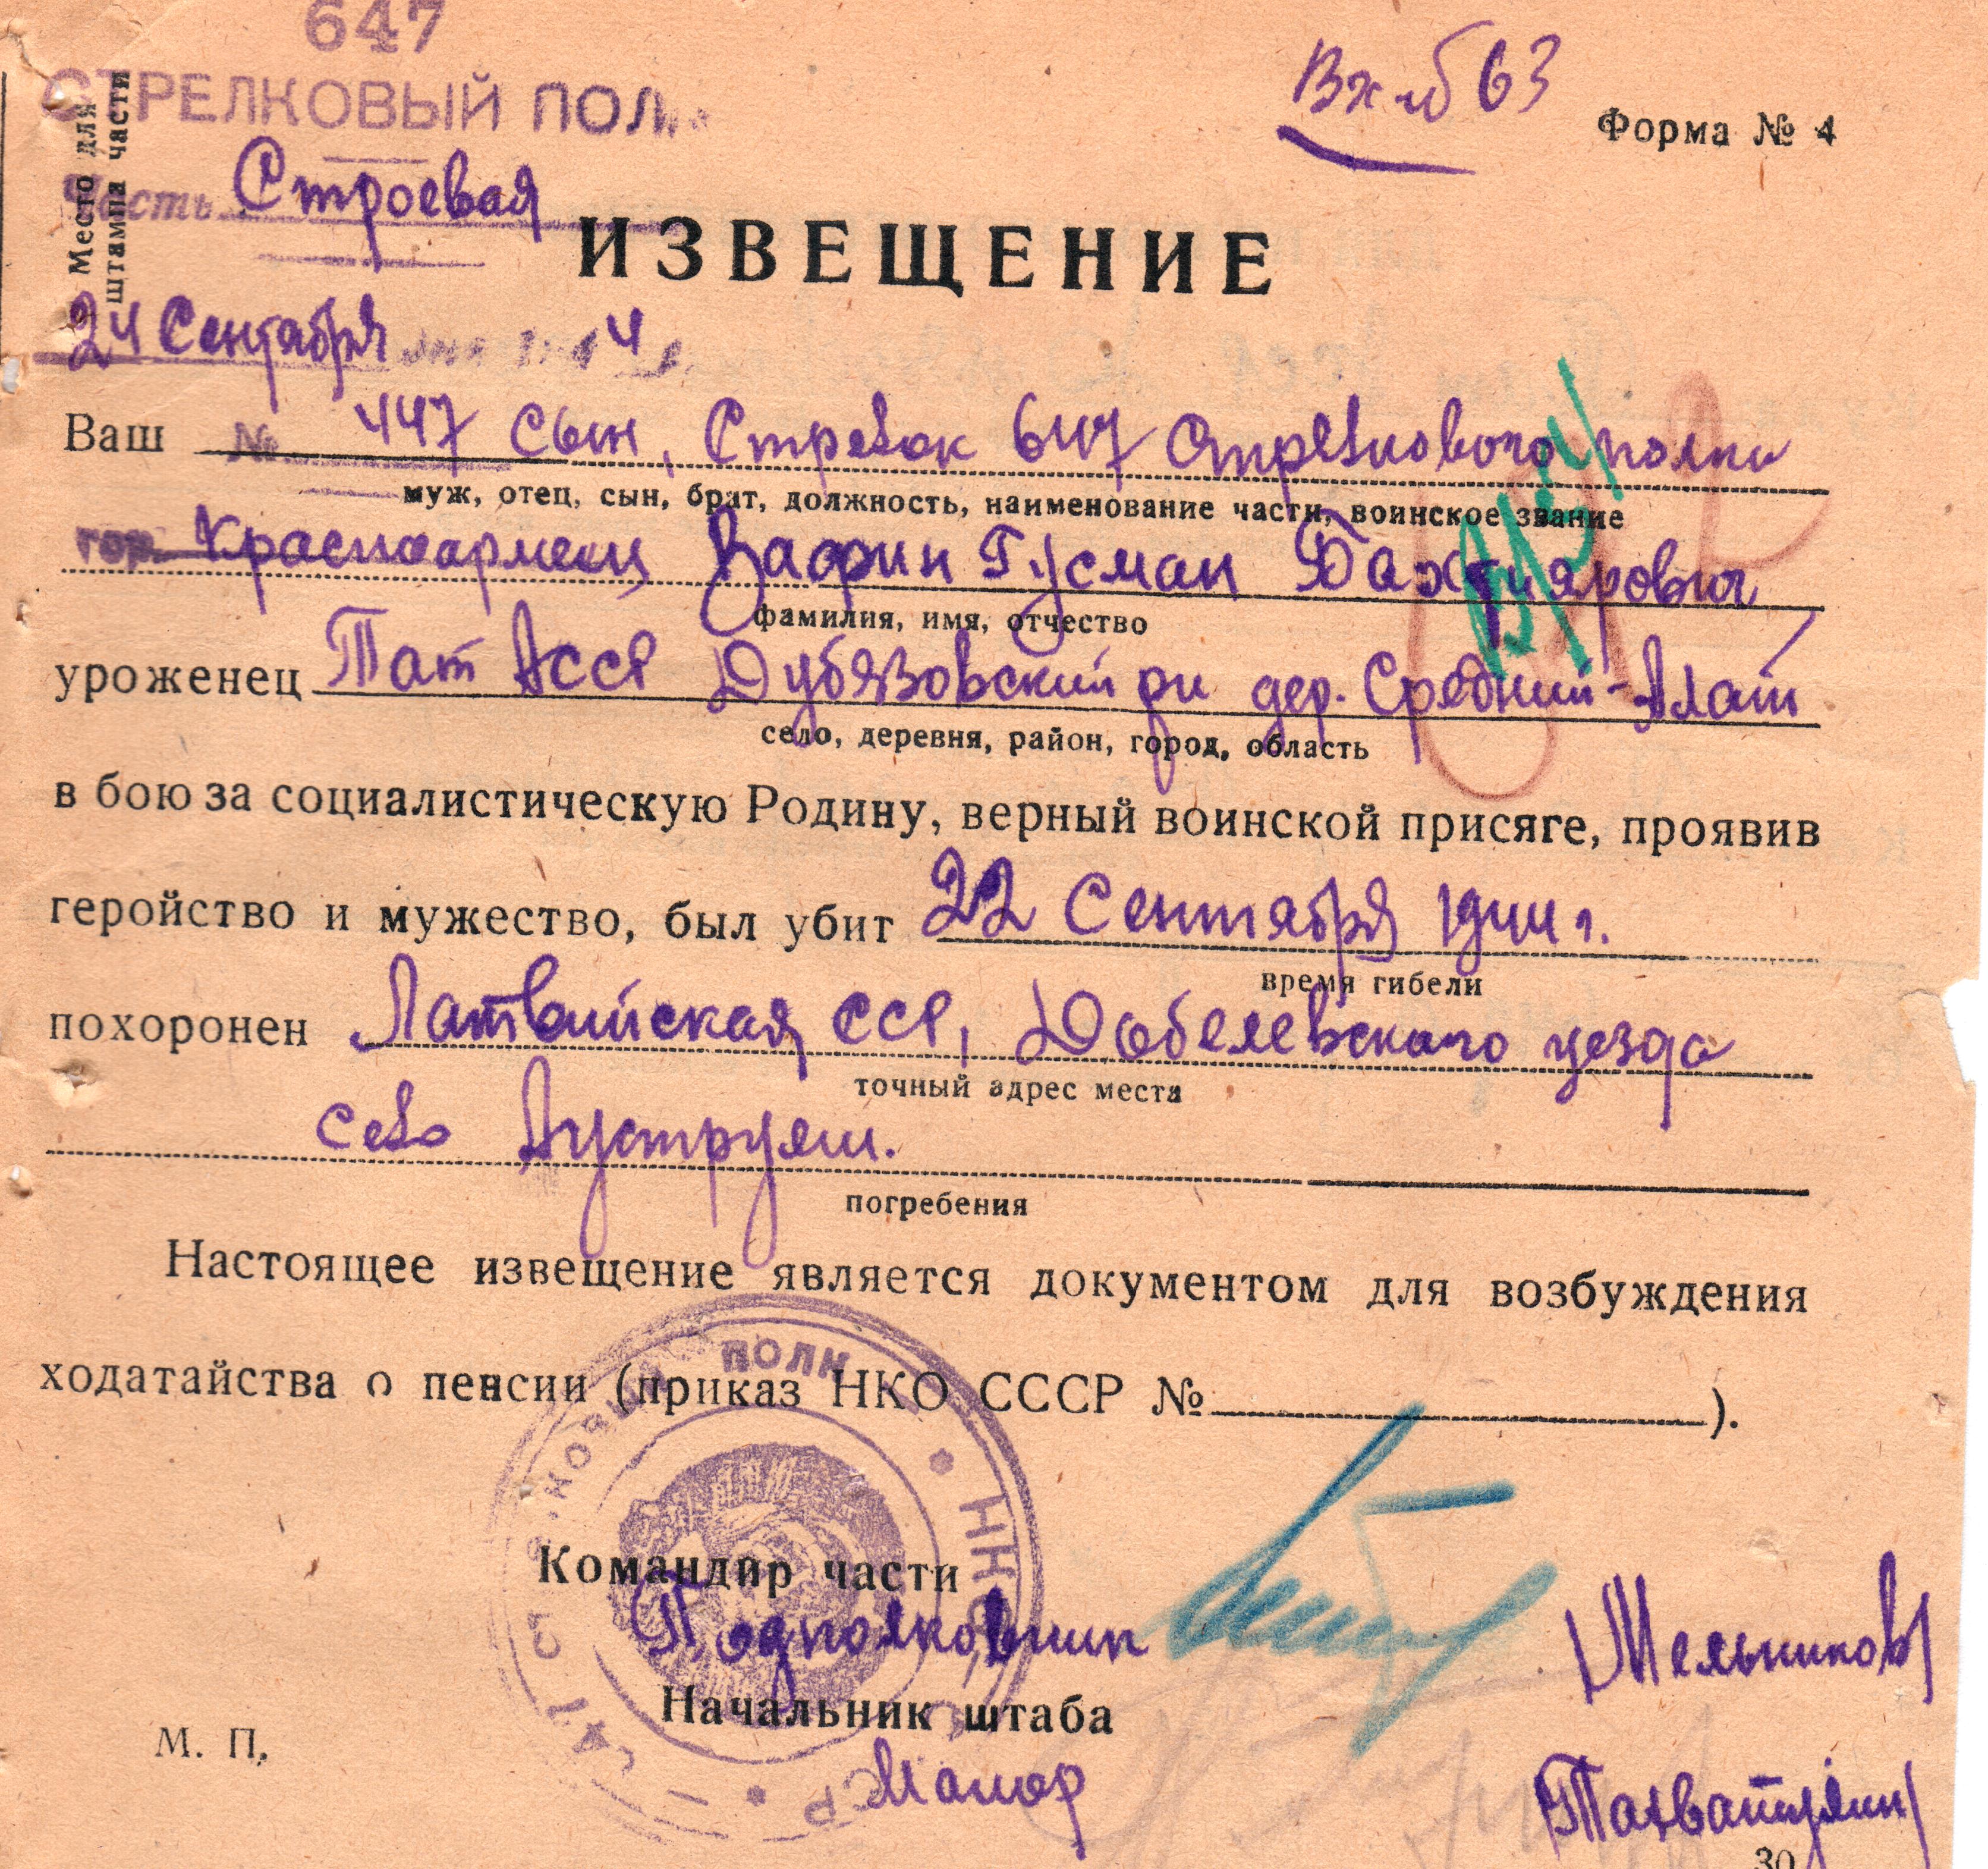 647
СТРЕЛКОВЫЙ ПОЛК
Место для
штампа части
Вх № 63
Форма № 4
Часть Строевая
ИЗВЕЩЕНИЕ
24 Сентября 4
Ваш № 447 сын, Стрелок 647 Стрелкового полка
муж, отец, сын, брат, должность, наименование части, воинское звание
гор. Красноармеец Вафин Гусман Бахтиярович
фамилия, имя, отчество
уроженец Тат АССР Дубязовский рн дер. Средний-Алат
село, деревня, район, город, область
в бою за социалистическую Родину, верный воинской присяге, проявив
геройство и мужество, был убит 22 Сентября 1944 г.
время гибели
похоронен Латвийская ССР, Добелевского уезда
точный адрес места
село Ауструм.
погребения
Настоящее извещение является документом для возбуждения
ходатайства о пенсии (приказ НКО СССР № ).
ПОЛК
НК
Командир части
Подполковник Мельников
Начальник штаба
М. П.
Майор
30